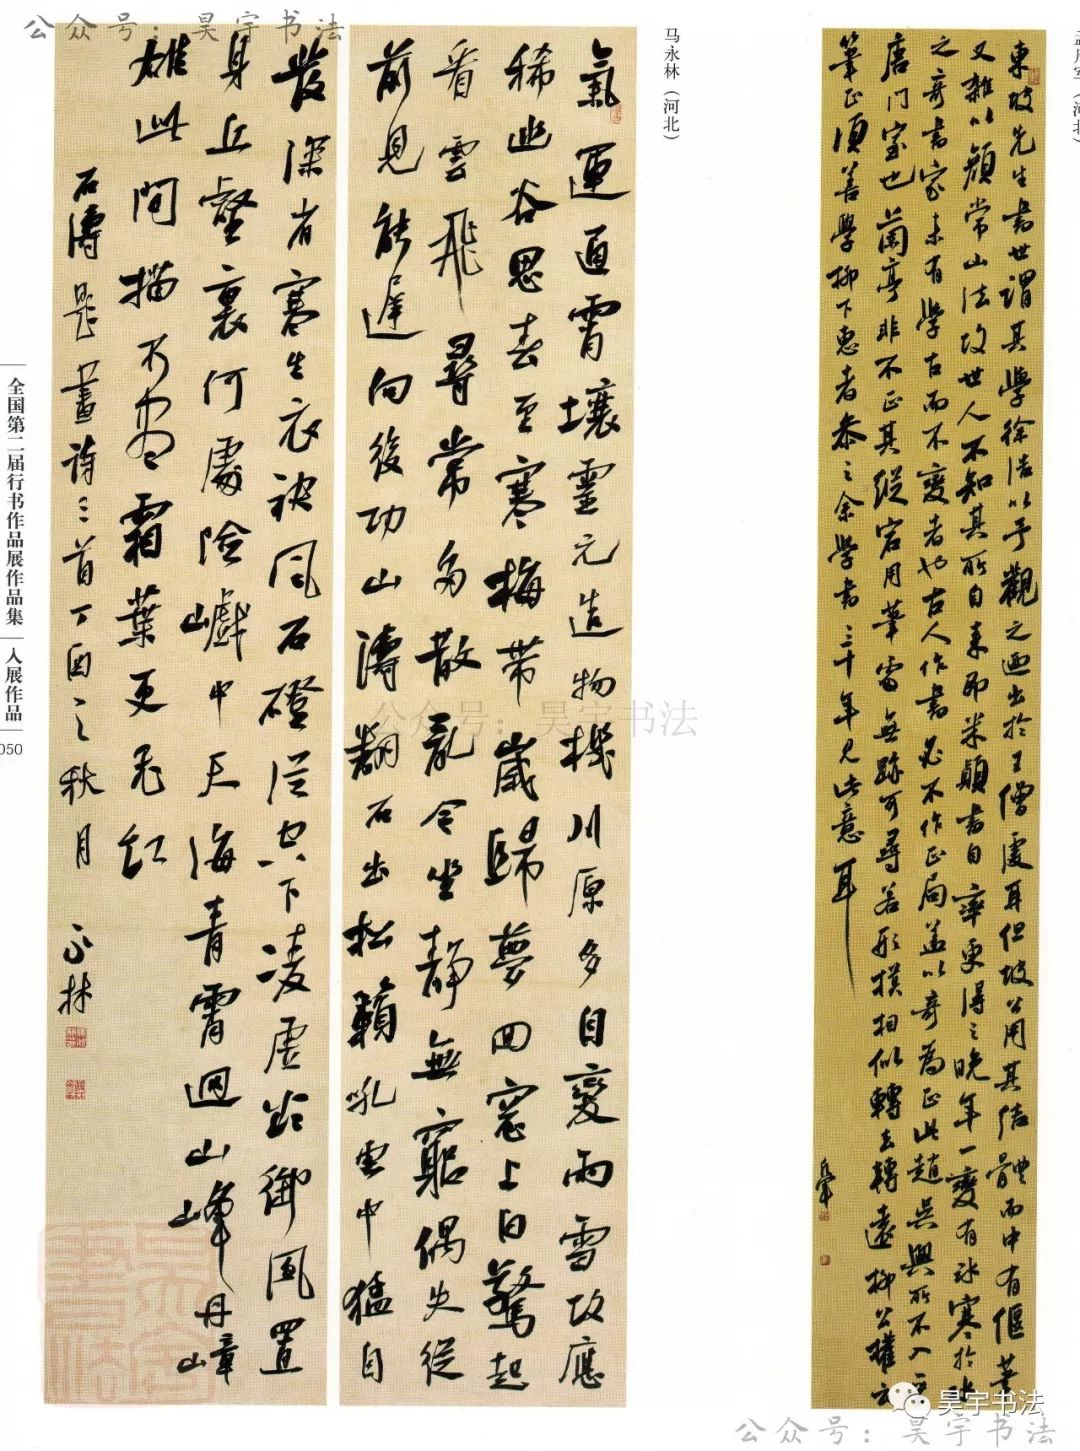 公众号：昊宇书法
孟庆军（河北）
東坡先生書世謂其學徐浩以予觀之迺出於王僧虔耳但坡公用其結體而中有偃筆
又雜以顏常山法故世人不知其所自來即米顛書自率更得之晚年一變有冰寒於水
之奇書家未有學古而不變者也古人作書必不作正局蓋以奇為正此趙吳興所不入
唐門室也蘭亭非不正其縱宕用筆處無跡可尋若形模相似轉去轉遠柳公權云
筆正須善學柳下惠者參之余學書三十年見此意耳
马永林（河北）
氣運通霄壤靈元造物機川原多自變雨雪故應
稀幽谷思春至寒梅帶歲歸夢回窓上日驚起
看雲飛尋常多散亂今坐靜無窮偶失從
前見能遲向後功山濤翻石出松籟吼雲中猛自
發深省寒生衣袂風石磴從空下凌虛御風置
身丘壑裏何處險巇中天海青霄迥山峰丹嶂
雄此間描不盡霜葉更飛紅
石濤題畫詩三首丁酉之秋月 永林
全国第二届行书作品展作品集
入展作品
050
公众号：昊宇书法
昊宇书法
公众号：昊宇书法